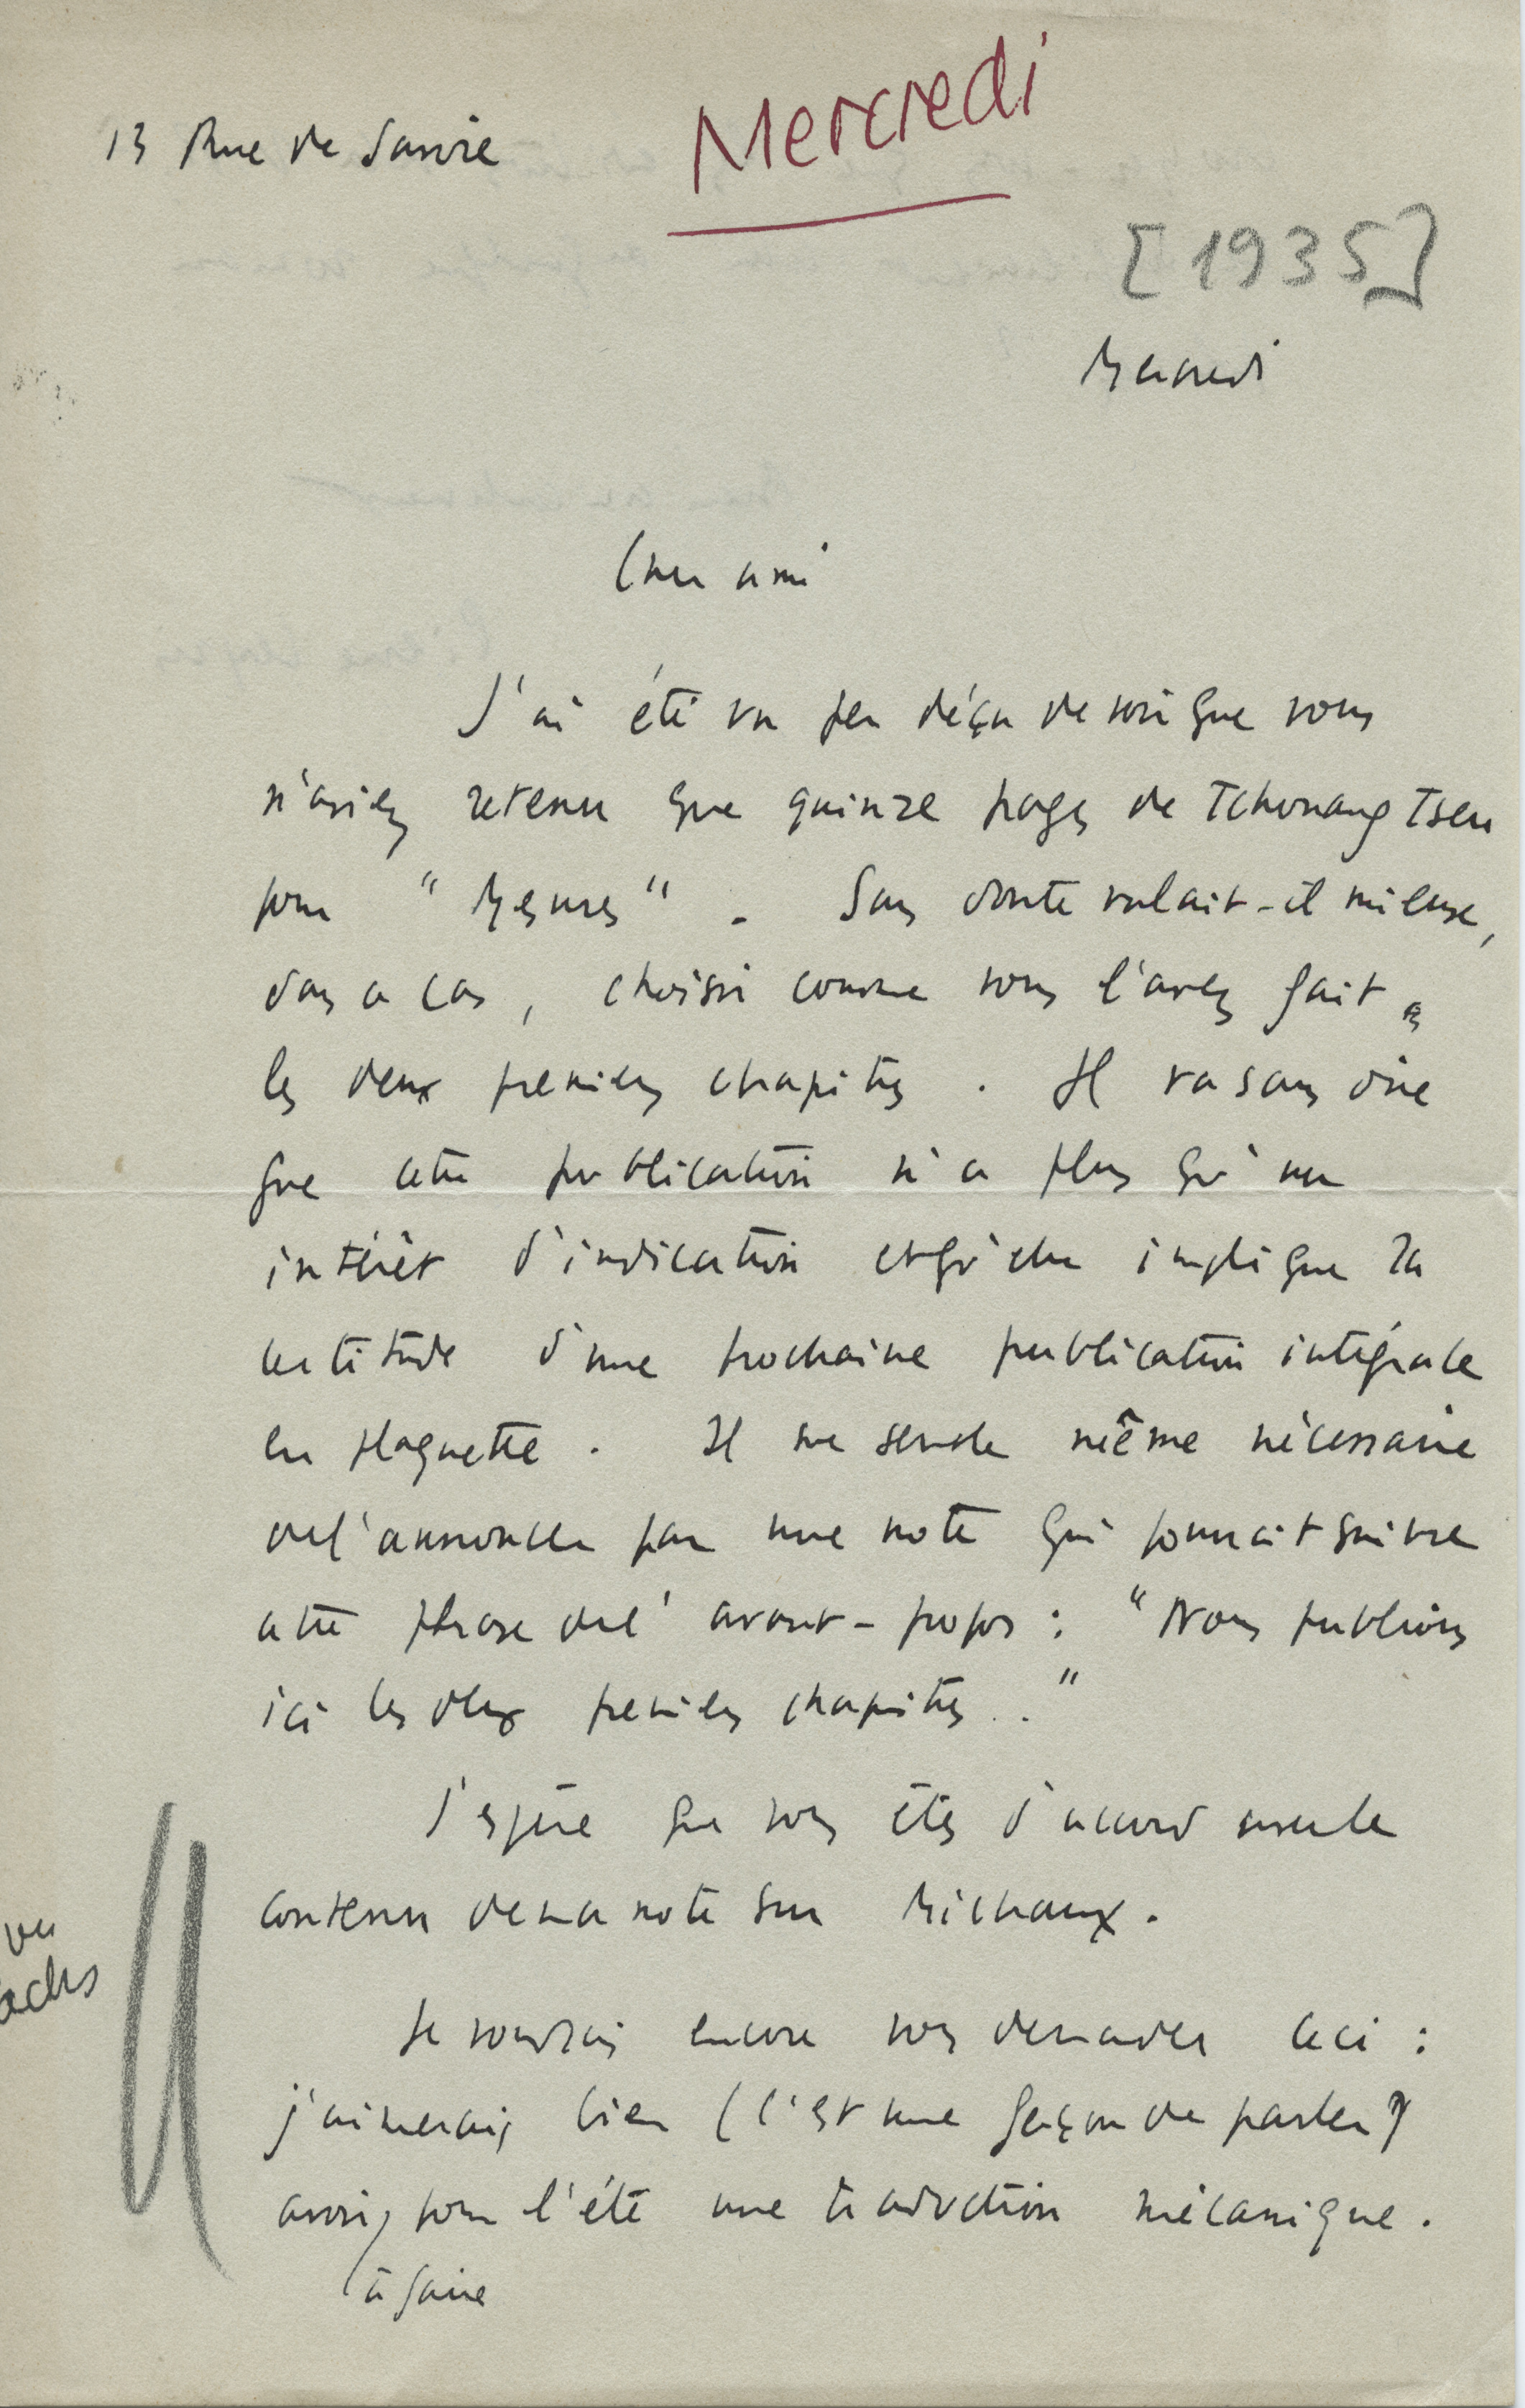 13 Rue de Savoie
Mercredi
[1935]
Mercredi
Cher ami
J'ai été un peu déçu de voir que vous
n'aviez retenu que quinze pages de Tchouang Tseu
pour "Mesures". Sans doute valait-il mieux,
dans ce cas, choisir comme vous l'avez fait
les deux premiers chapitres. Il va sans dire
que cette publication n'a plus qu'un
intérêt d'indication et qu'elle implique la
certitude d'une prochaine publication intégrale
en plaquette. Il me semble même nécessaire
de l'annoncer par une note qui pourrait suivre
cette phrase de l'avant-propos : "Nous publions
ici les deux premiers chapitres.."
J'espère que vous êtes d'accord avec le
contenu de ma note sur Michaux.
vu
Je voudrais encore vous demander ceci :
j'aimerais bien (c'est une façon de parler)
avoir, pour l'été une traduction mécanique.
à faire